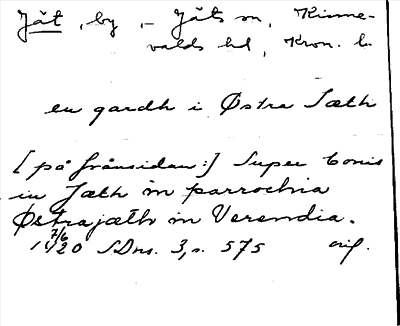 Jät, by, – Jäts sn, Kinne-
valds hd, Kron. l.
en gardh i Østra Jæth
[på frånsidan:] Super bonis
in Jæth in parrochia
Østrajæth in Verendia.
7/6 1420 SDns. 3, s. 575 orig.